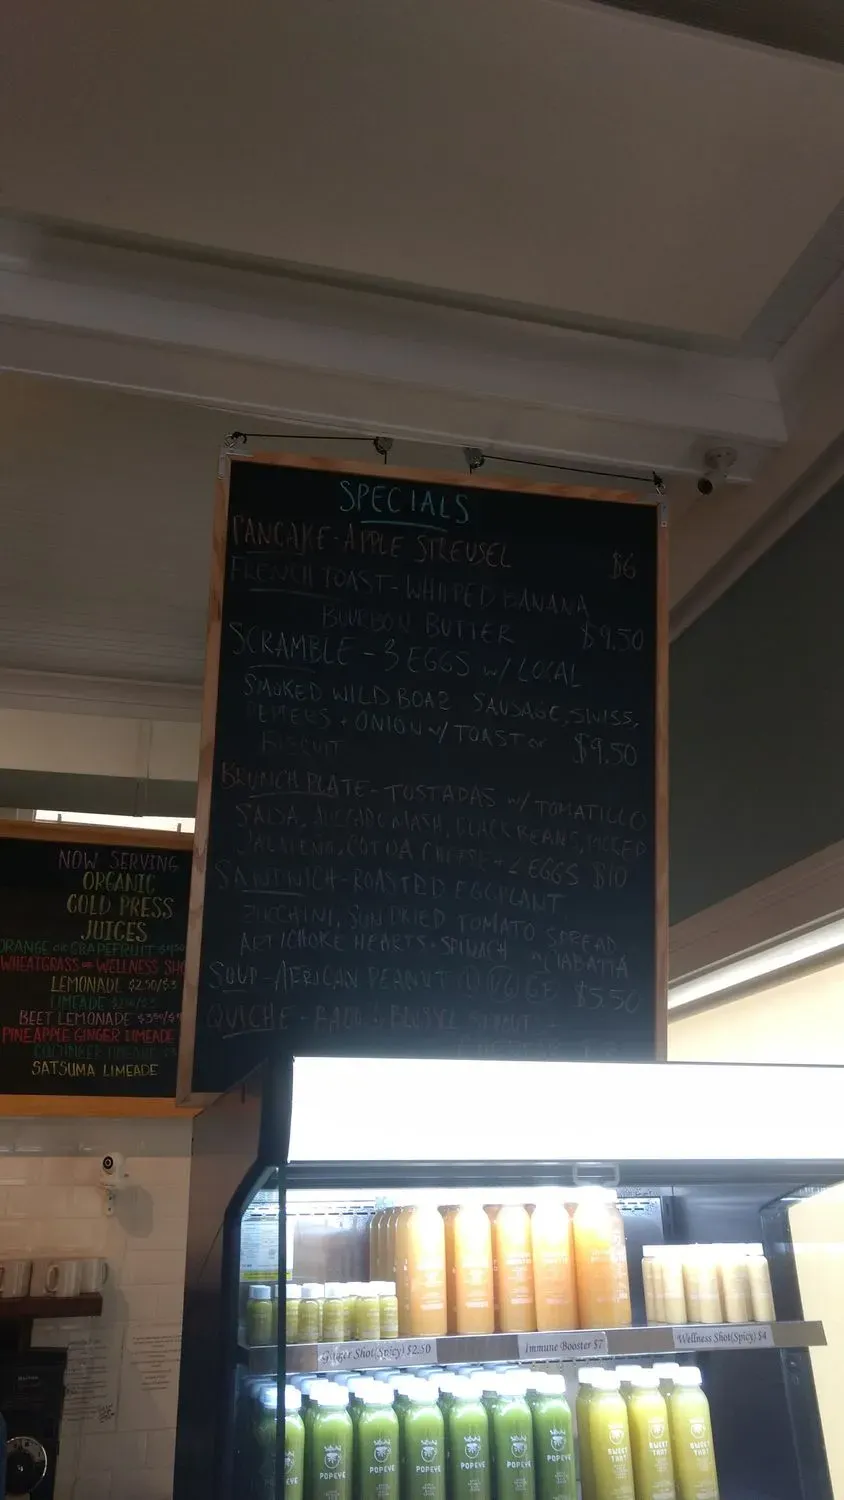 SPECIALS
PANCAKE - APPLE STREUSEL $6
FRENCH TOAST - WHIPPED BANANA
BOURBON BUTTER $9.50
SCRAMBLE - 3 EGGS w/ LOCAL
SMOKED WILD BOAR SAUSAGE, SWISS,
PEPPERS + ONION w/ TOAST or $9.50
BISCUIT
BRUNCH PLATE - TOSTADAS w/ TOMATILLO
SALSA, AVOCADO MASH, BLACK BEANS, PICKLED
JALAPENO, COTIJA CHEESE + 2 EGGS $10
SANDWICH - ROASTED EGGPLANT,
ZUCCHINI, SUNDRIED TOMATO SPREAD,
ARTICHOKE HEARTS + SPINACH CIABATTA
SOUP - AFRICAN PEANUT $5.50
QUICHE -
NOW SERVING
ORGANIC
COLD PRESS
JUICES
ORANGE or GRAPEFRUIT
WHEATGRASS or WELLNESS
LEMONADE $2.50/$3
LIMEADE
BEET LEMONADE
PINEAPPLE GINGER LIMEADE
SATSUMA LIMEADE
Ginger Shot(Spicy) $2.50
Immune Booster $7
Wellness Shot(Spicy) $4
POPEYE
POPEYE
POPEYE
POPEYE
POPEYE
POPEYE
SWEET
TART
SWEET
TART
SWEET
TART